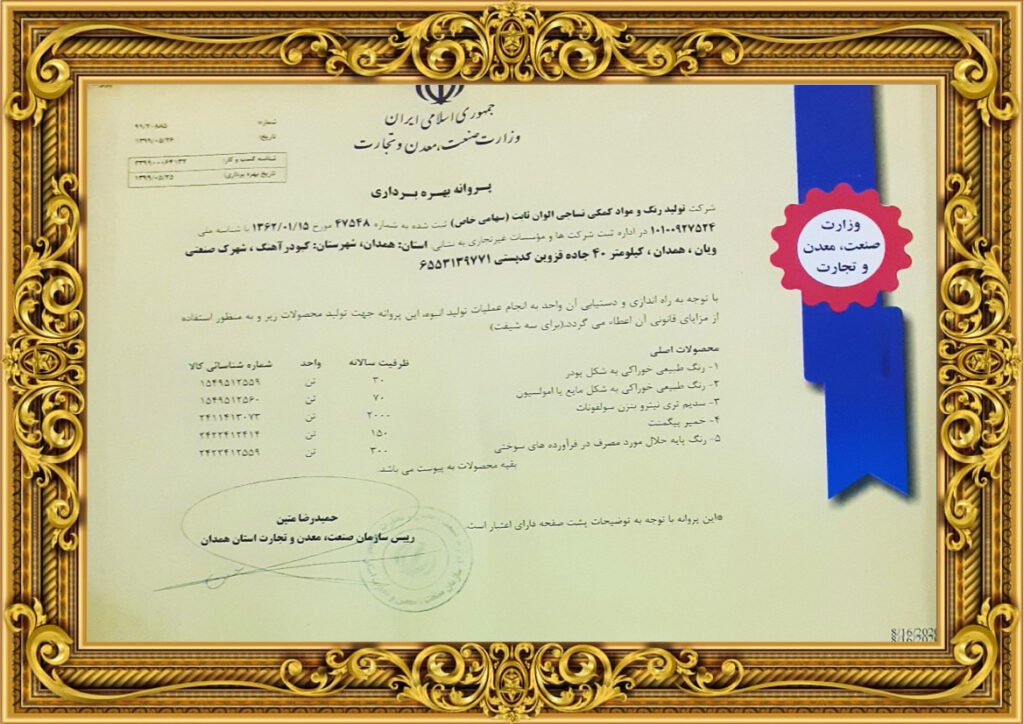 جمهوری اسلامی ایران
وزارت صنعت، معدن و تجارت
شماره:
تاریخ: ۱۳۹۹/۰۵/۲۶
شناسه کسب و کار:
تاریخ بهره برداری: ۱۳۹۹/۰۵/۲۵
پروانه بهره برداری
شرکت تولید رنگ و مواد کمکی نساجی الوان ثابت (سهامی خاص) ثبت شده به شماره ۴۷۵۴۸ مورخ ۱۳۶۲/۰۱/۱۵ با شناسه ملی
۱۰۱۰۰۹۲۷۵۲۴ در اداره ثبت شرکت ها و مؤسسات غیرتجاری به نشانی استان: همدان، شهرستان: کبودرآهنگ، شهرک صنعتی
ویان ، همدان ، کیلومتر ۴۰ جاده قزوین کدپستی ۶۵۵۳۱۳۹۷۷۱
وزارت
صنعت، معدن
و تجارت
با توجه به راه اندازی و دستیابی آن واحد به انجام عملیات تولید انبوه، این پروانه جهت تولید محصولات زیر و به منظور استفاده
از مزایای قانونی آن اعطاء می گردد.(برای سه شیفت)
محصولات اصلی ظرفیت سالانه واحد شماره شناسائی کالا
۱- رنگ طبیعی خوراکی به شکل پودر ۳۰ تن ۱۵۴۹۵۱۲۵۵۹
۲- رنگ طبیعی خوراکی به شکل مایع یا امولسیون ۷۰ تن ۱۵۴۹۵۱۲۵۶۰
۳- سدیم تری نیترو بنزن سولفونات ۲۰۰۰ تن ۲۴۱۱۴۱۳۰۷۳
۴- خمیر پیگمنت ۱۵۰ تن ۲۴۲۲۴۱۲۴۱۴
۵- رنگ پایه حلال مورد مصرف در فرآورده های سوختی ۳۰۰ تن ۲۴۲۲۴۱۲۵۵۹
بقیه محصولات به پیوست می باشد.
*این پروانه با توجه به توضیحات پشت صفحه دارای اعتبار است.
حمیدرضا متین
رییس سازمان صنعت، معدن و تجارت استان همدان
8/16/2020